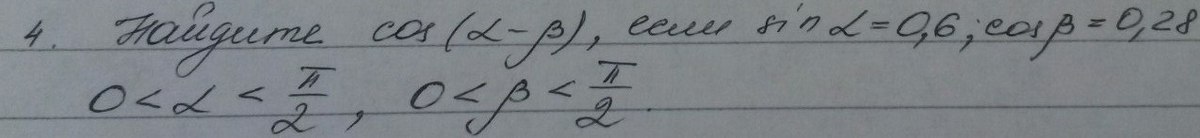 4. Найдите cos(α-β), если sin α=0,6; cosβ=0,28
0<α<π/2, 0<β<π/2.